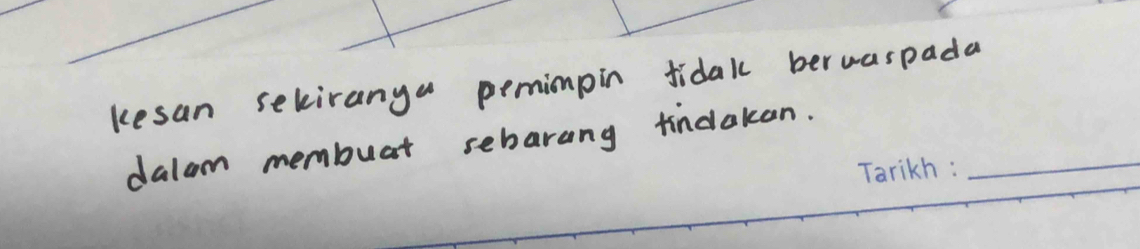 kesan sekiranya pemimpin tidak berwaspada
dalam membuat sebarang tindakan.
Tarikh :